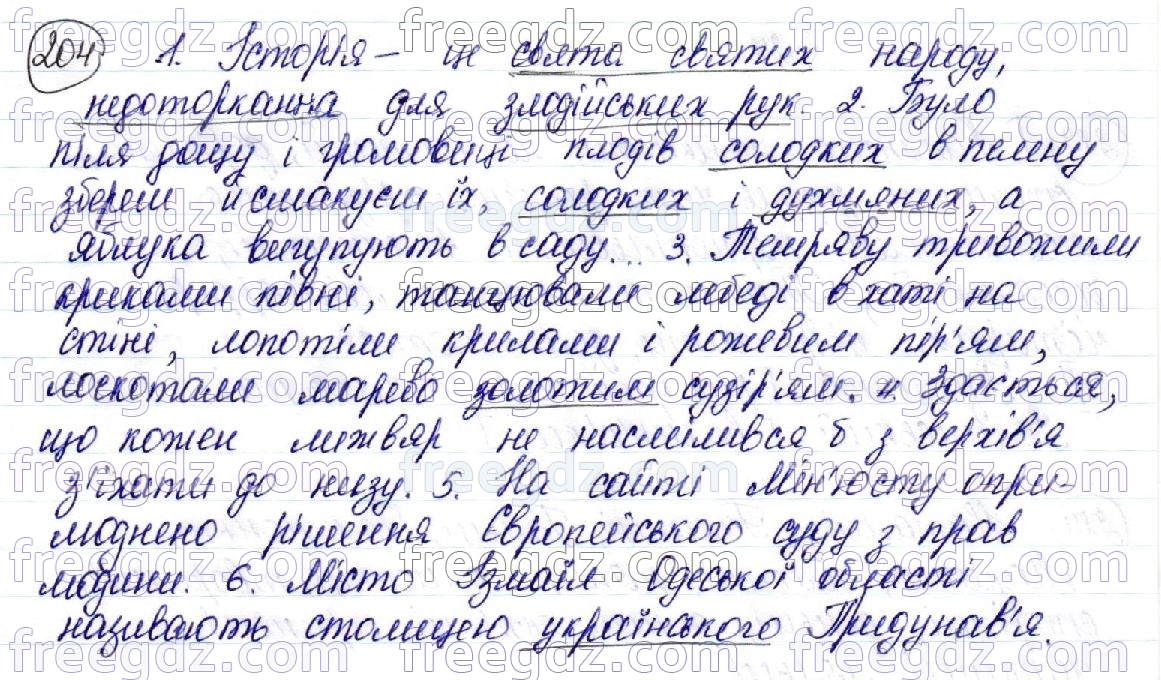 204 1. Історія – це свята святих народу,
недоторканна для злодійських рук. 2. Було
піля дощу і громовиці плодів солодких в пелену
збереш й смакуєш їх, солодких і духмяних, а
яблука вигупують в саду... 3. Темряву тривожили
криками півні, танцювали лебеді в хаті на
стіні, лопотіли крилами і рожевим пір'ям,
лоскотали марево золотим сузір'ям. 4. Здається,
що кожен лижвяр не насмілився б з верхів'я
з'їхати до низу. 5. На сайті Мін'юсту опри-
люднено рішення Європейського суду з прав
людини. 6. Місто Ізмаїл Одеської області
називають столицею українського Придунав'я.